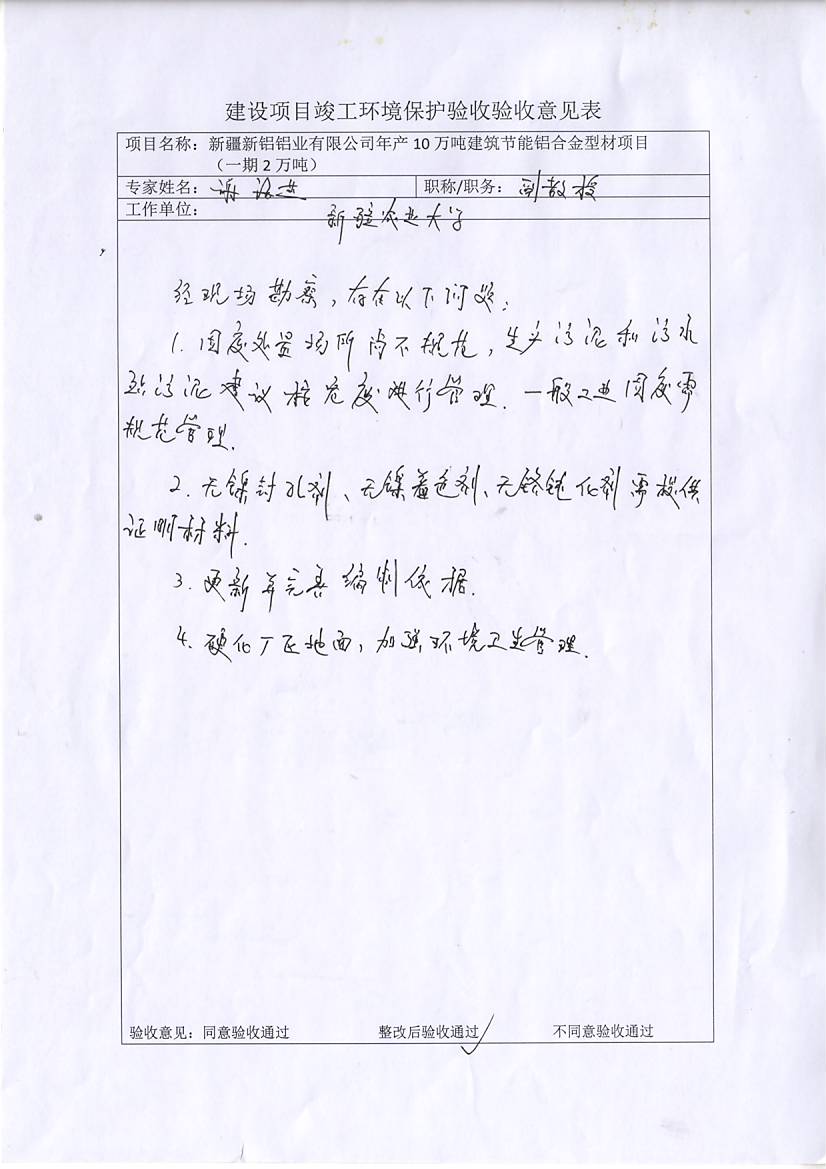 建设项目竣工环境保护验收验收意见表
项目名称：新疆新铝铝业有限公司年产10万吨建筑节能铝合金型材项目
（一期2万吨）
专家姓名：谢 职称/职务：副教授
工作单位：新疆农业大学
经现场勘察，存在以下问题：
1. 固废处置场所尚不规范，生产污泥和污水
站污泥建议按危废进行管理．一般工业固废需
规范管理．
2. 无镍封孔剂、无镍着色剂、无铬钝化剂需提供
证明材料．
3. 更新并完善编制依据．
4. 硬化厂区地面，加强环境卫生管理．
验收意见：同意验收通过 整改后验收通过✓ 不同意验收通过